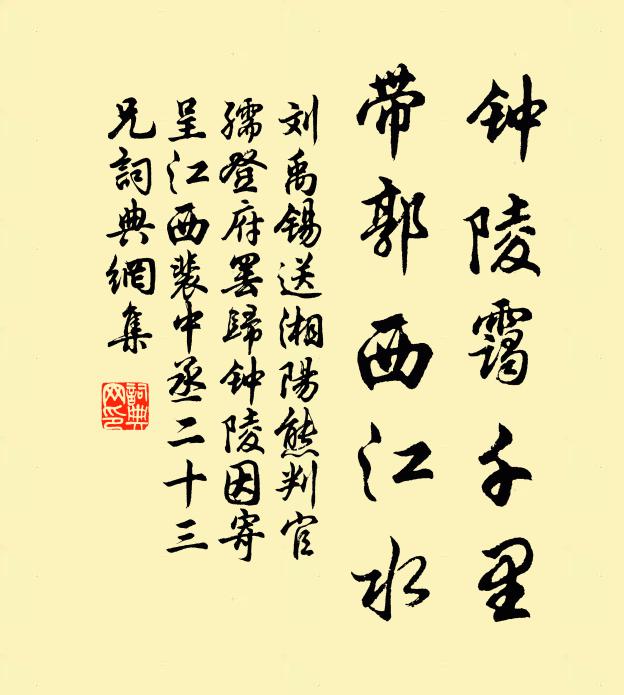 钟陵霭千里
带郭西江水
刘禹锡送湘陽熊判官
孺登府罢歸钟陵因寄
呈江西裴中丞二十三
兄詞典網集
詞典网印